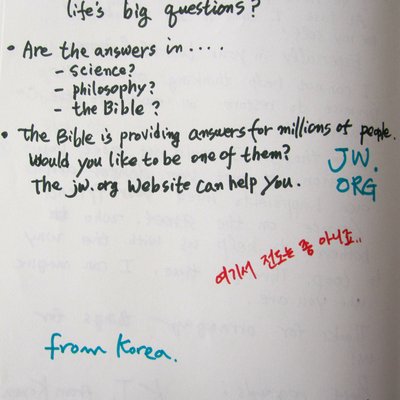 life's big questions?
• Are the answers in .....
- science?
- philosophy?
- the Bible?
• The Bible is providing answers for millions of people.
Would you like to be one of them?
The jw.org Website can help you.
JW.
ORG
여기서 전도는 좀 아니죠..
from Korea.